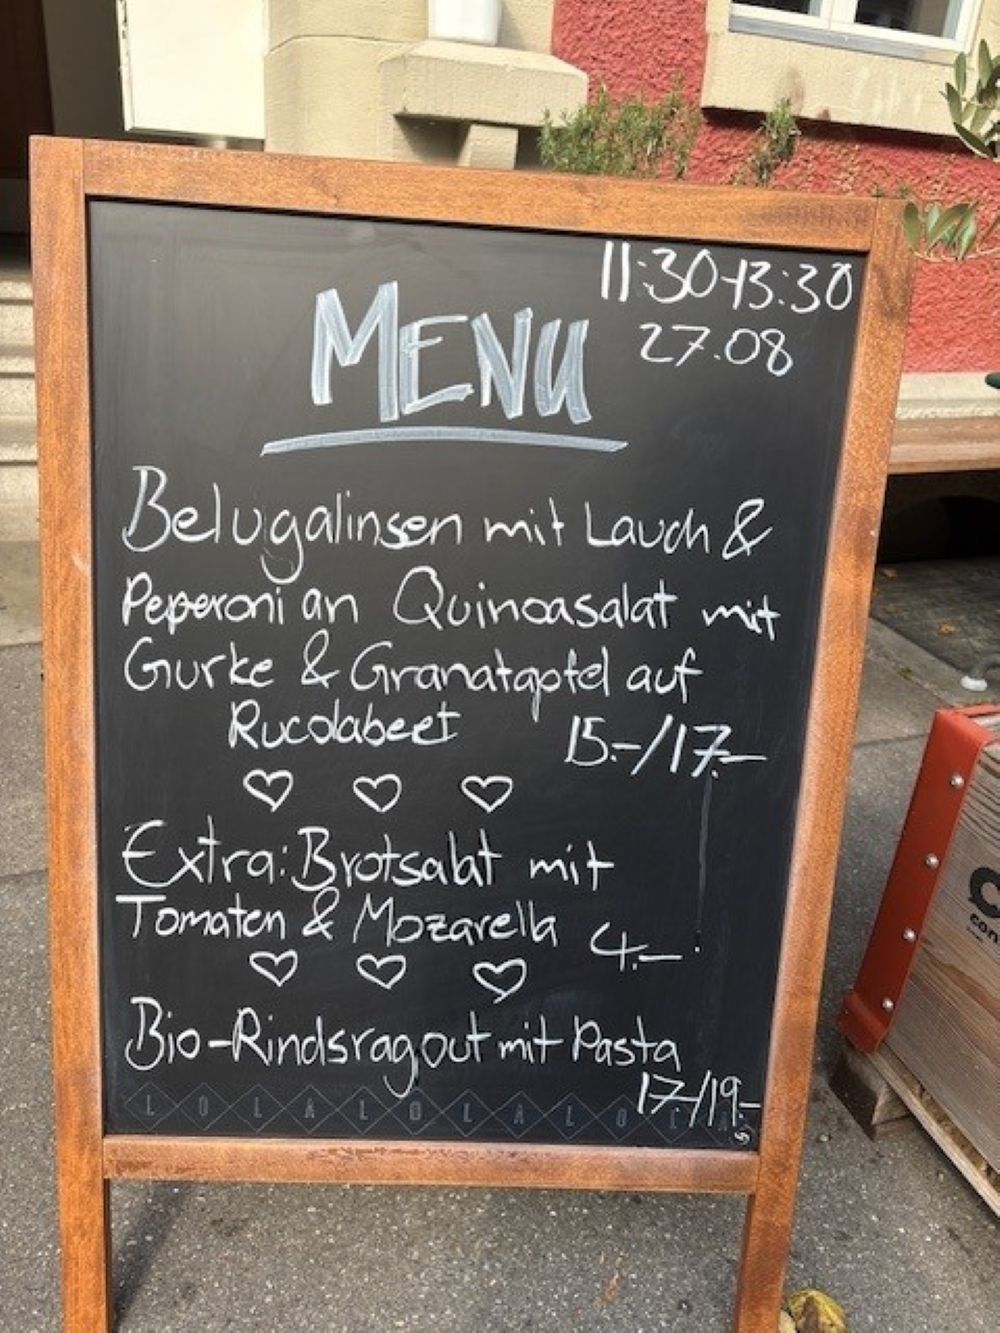 11:30-13:30
27.08
MENU
Belugalinsen mit Lauch &
Peperoni an Quinoasalat mit
Gurke & Granatapfel auf
Rucolabeet 15.-/17.-
Extra: Brotsalat mit
Tomaten & Mozarella 4.-
Bio-Rindsragout mit Pasta
17.-/19.-
LOLALOLALOLA
con